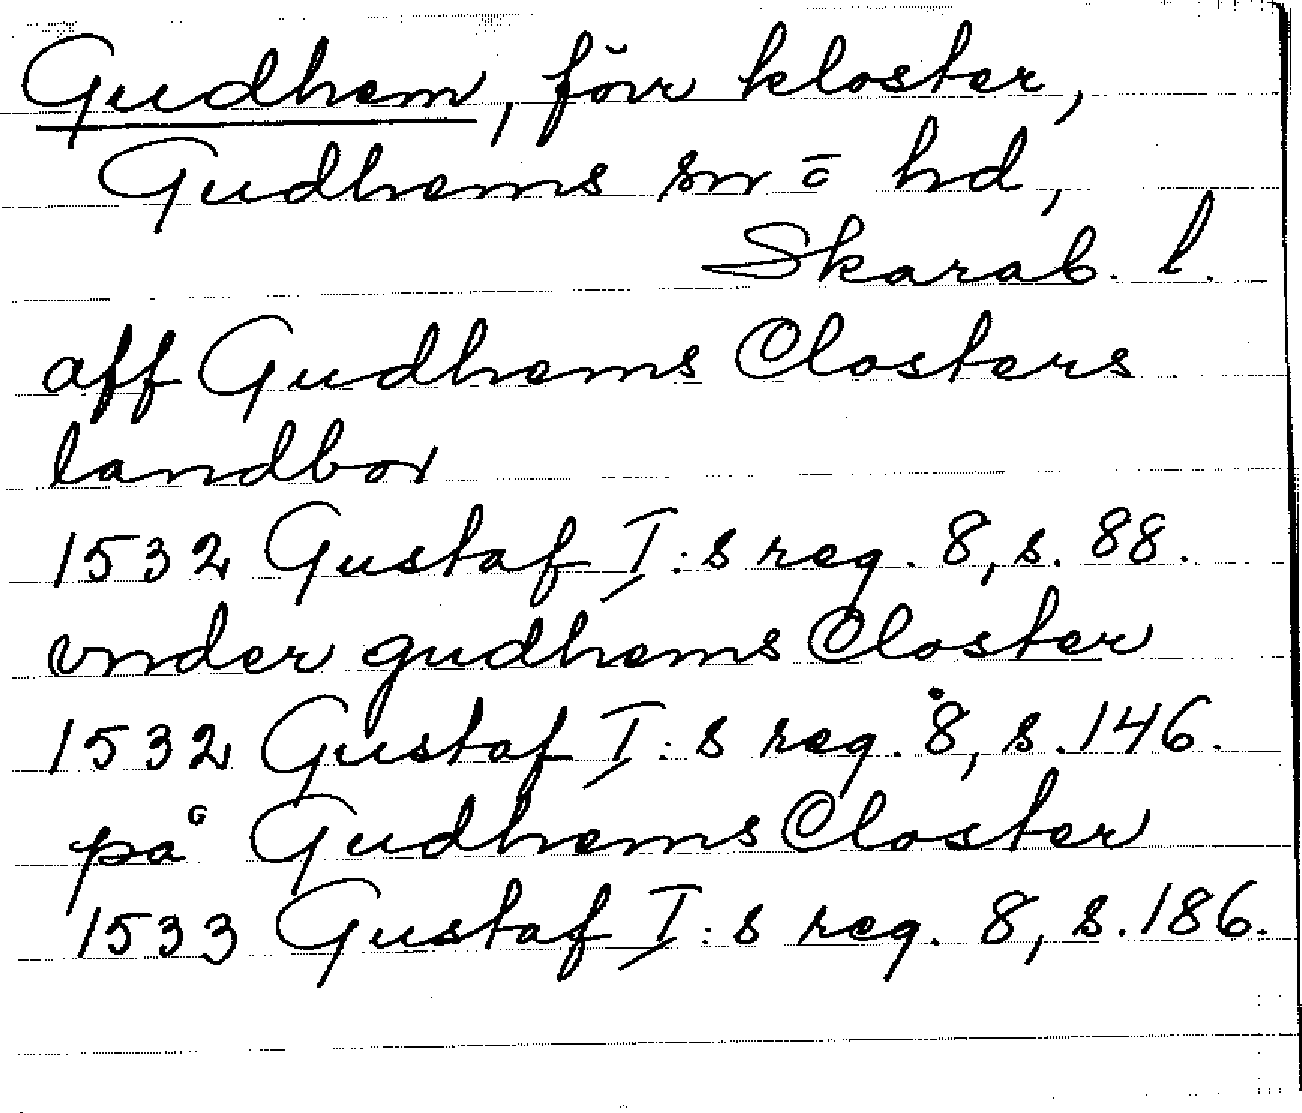 Gudhem, förr kloster,
Gudhems sn o hd,
Skarab. l.
aff Gudhems Closters
landbor
1532 Gustaf I:s reg. 8, s. 88.
vnder gudhems Closter
1532 Gustaf I:s reg. 8, s. 146.
på Gudhems Closter
1533 Gustaf I:s reg. 8, s. 186.